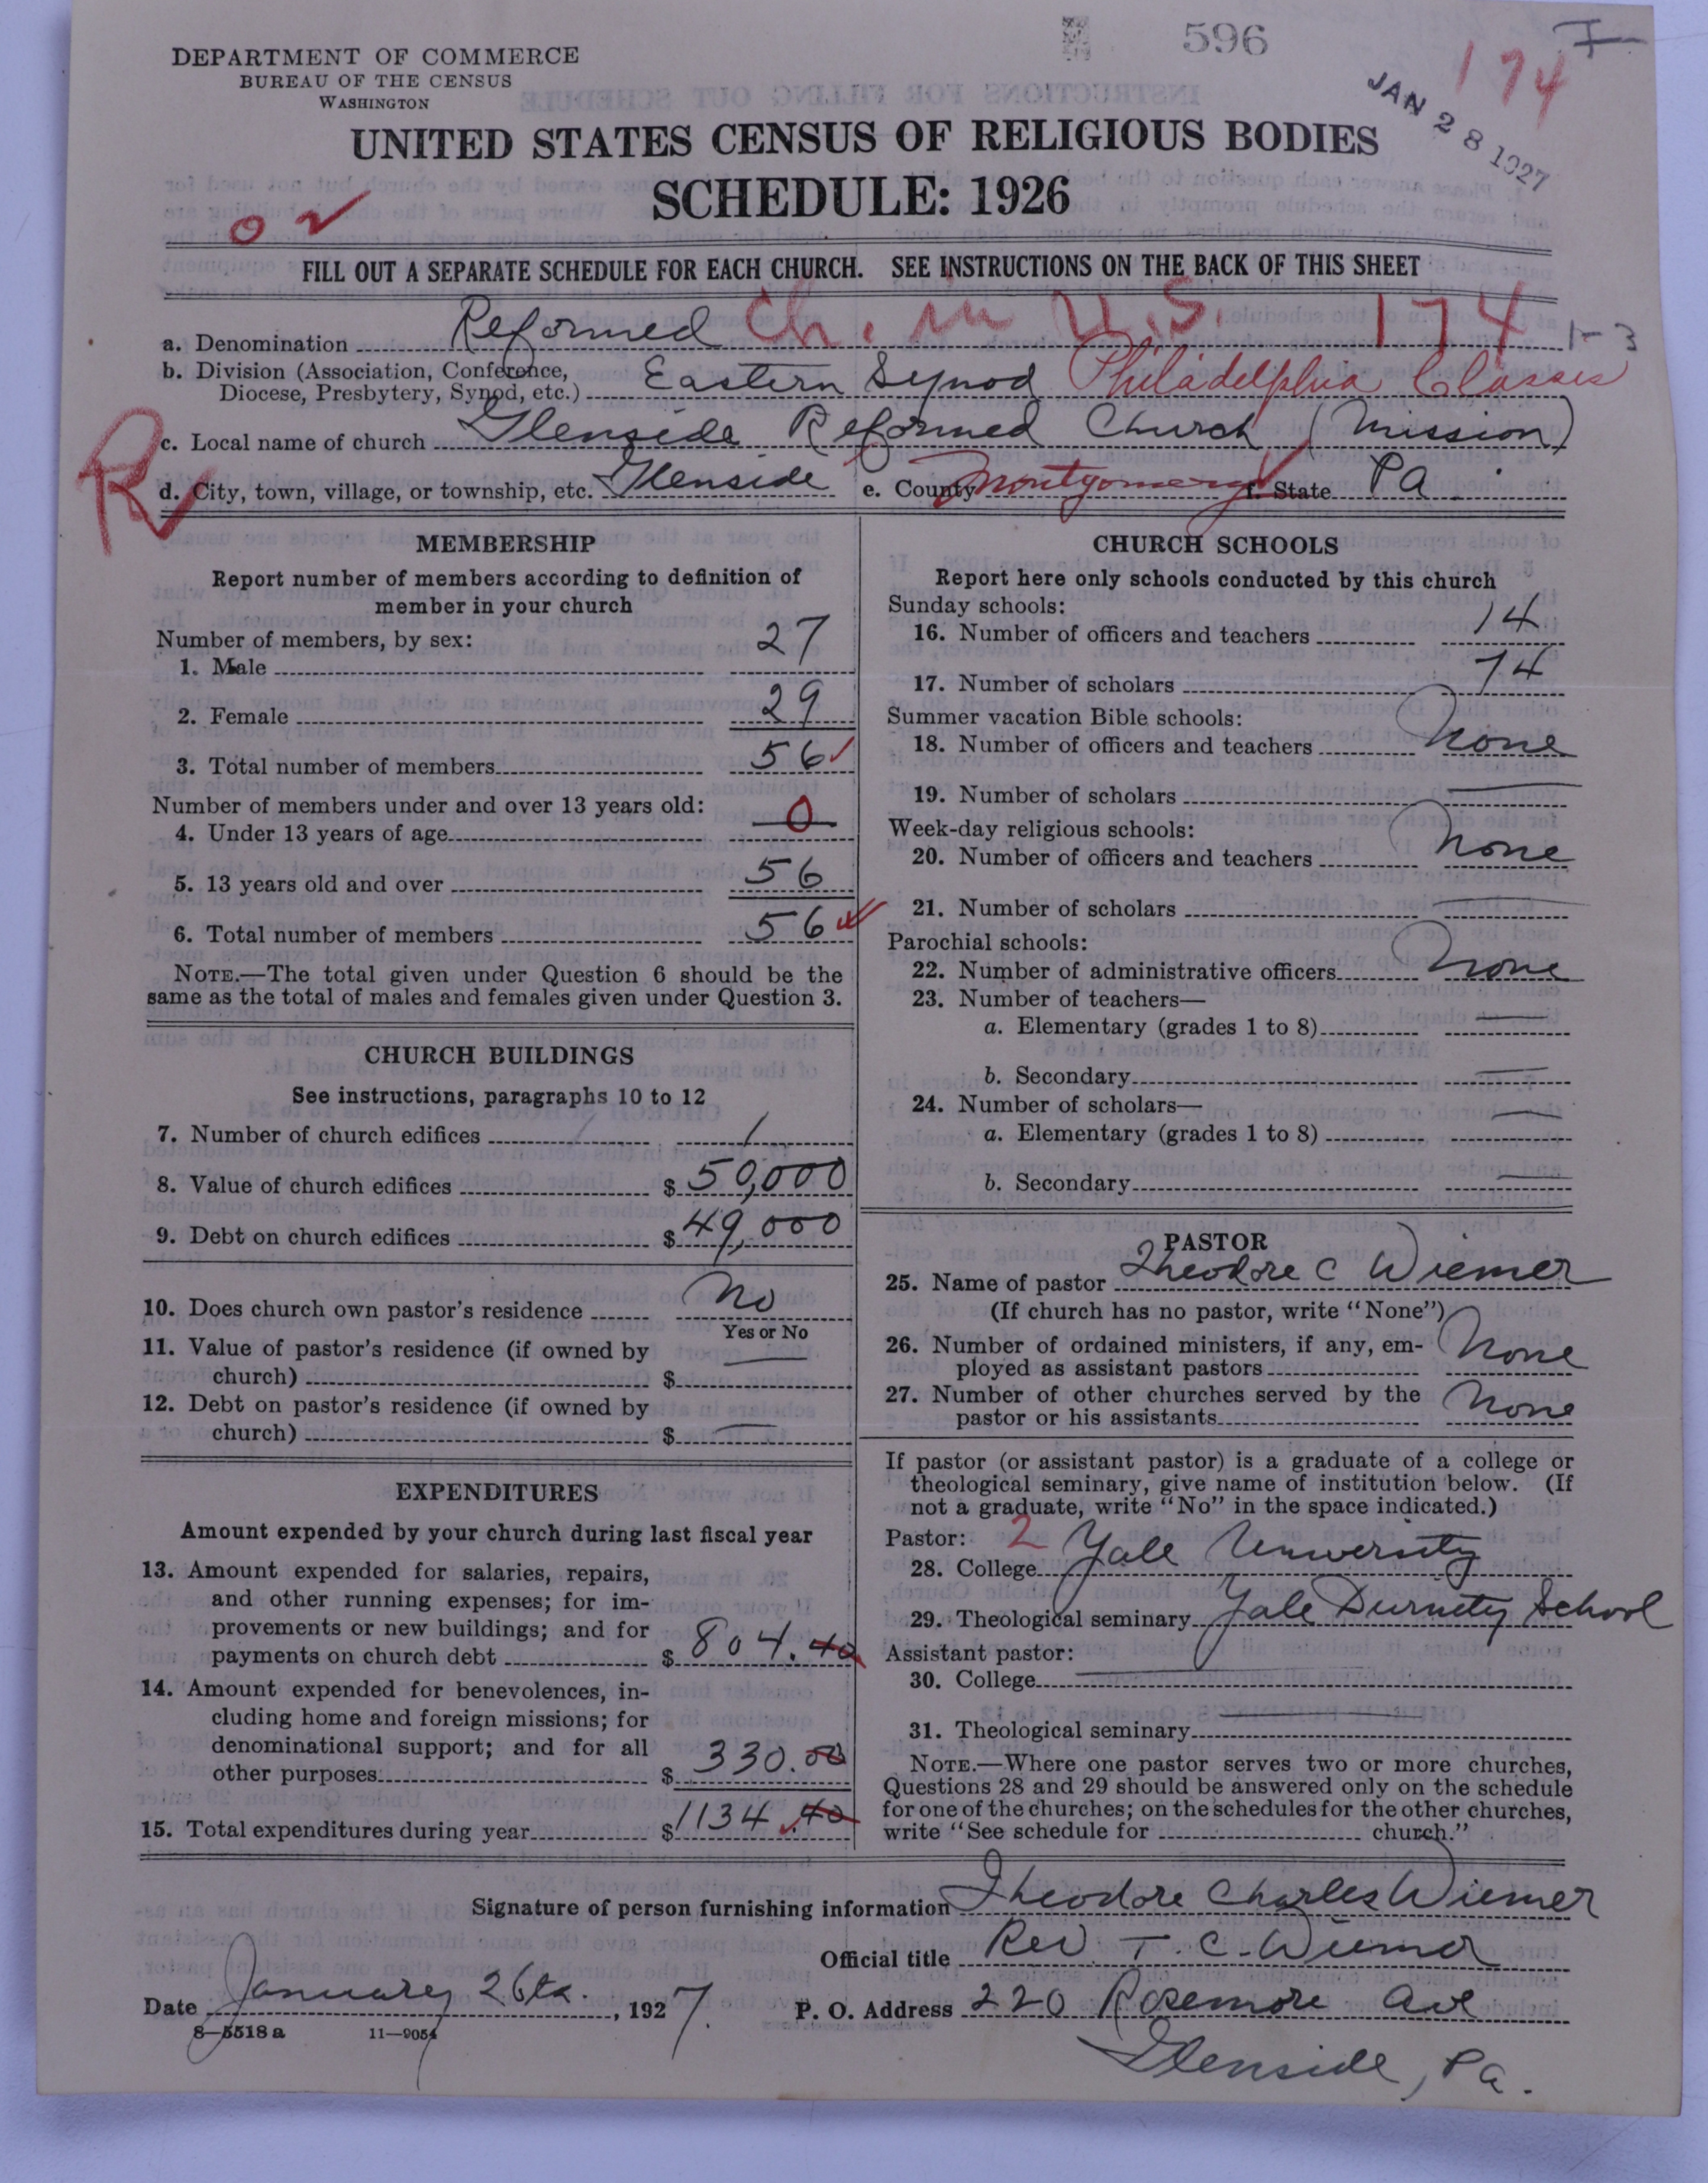 596
174
JAN 28 1927
DEPARTMENT OF COMMERCE
BUREAU OF THE CENSUS
WASHINGTON
UNITED STATES CENSUS OF RELIGIOUS BODIES
SCHEDULE: 1926
FILL OUT A SEPARATE SCHEDULE FOR EACH CHURCH. SEE INSTRUCTIONS ON THE BACK OF THIS SHEET
a. Denomination Reformed Ch. in U.S. 174 1-3
b. Division (Association, Conference,
Diocese, Presbytery, Synod, etc.) Eastern Synod Philadelphia Classis
c. Local name of church Glenside Reformed Church (Mission)
d. City, town, village, or township, etc. Glenside e. County Montgomery f. State Pa.
MEMBERSHIP
Report number of members according to definition of
member in your church
Number of members, by sex:
1. Male 27
2. Female 29
3. Total number of members 56
Number of members under and over 13 years old:
4. Under 13 years of age 0
5. 13 years old and over 56
6. Total number of members 56
NOTE.—The total given under Question 6 should be the
same as the total of males and females given under Question 3.
CHURCH BUILDINGS
See instructions, paragraphs 10 to 12
7. Number of church edifices 1
8. Value of church edifices $ 50,000
9. Debt on church edifices $ 49,000
10. Does church own pastor's residence No
Yes or No
11. Value of pastor's residence (if owned by
church) $ —
12. Debt on pastor's residence (if owned by
church) $ —
EXPENDITURES
Amount expended by your church during last fiscal year
13. Amount expended for salaries, repairs,
and other running expenses; for im-
provements or new buildings; and for
payments on church debt $ 804.40
14. Amount expended for benevolences, in-
cluding home and foreign missions; for
denominational support; and for all
other purposes $ 330.00
15. Total expenditures during year $ 1134.40
CHURCH SCHOOLS
Report here only schools conducted by this church
Sunday schools:
16. Number of officers and teachers 14
17. Number of scholars 74
Summer vacation Bible schools:
18. Number of officers and teachers None
19. Number of scholars —
Week-day religious schools:
20. Number of officers and teachers None
21. Number of scholars —
Parochial schools:
22. Number of administrative officers None
23. Number of teachers—
a. Elementary (grades 1 to 8) —
b. Secondary —
24. Number of scholars—
a. Elementary (grades 1 to 8) —
b. Secondary —
PASTOR
25. Name of pastor Theodore C Wiemer
(If church has no pastor, write "None")
26. Number of ordained ministers, if any, em-
ployed as assistant pastors None
27. Number of other churches served by the
pastor or his assistants None
If pastor (or assistant pastor) is a graduate of a college or
theological seminary, give name of institution below. (If
not a graduate, write "No" in the space indicated.)
Pastor: 2
28. College Yale University
29. Theological seminary Yale Divinity School
Assistant pastor:
30. College —
31. Theological seminary —
NOTE.—Where one pastor serves two or more churches,
Questions 28 and 29 should be answered only on the schedule
for one of the churches; on the schedules for the other churches,
write "See schedule for church."
Signature of person furnishing information Theodore Charles Wiemer
Official title Rev T. C. Wiemer
Date January 26th, 1927. P. O. Address 220 Rosemore Ave
8—5518 a 11—9054
Glenside, Pa.